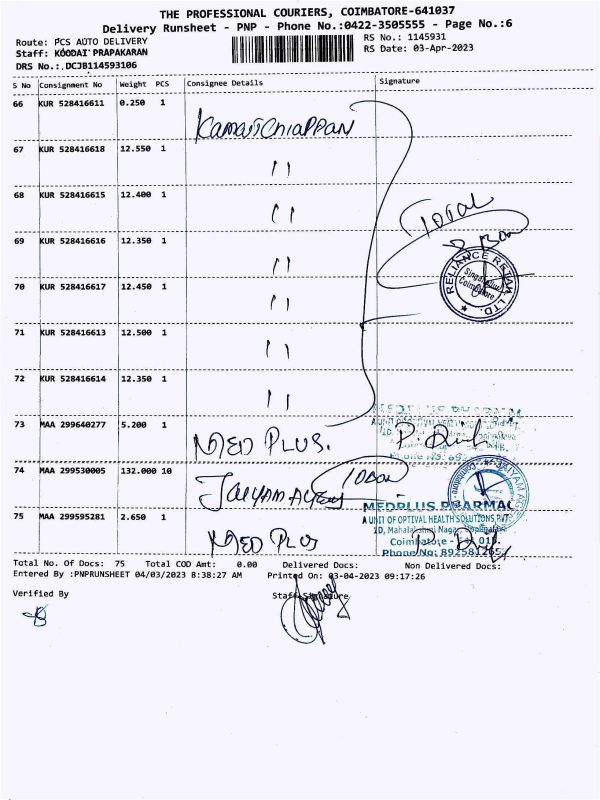 THE PROFESSIONAL COURIERS, COIMBATORE-641037
Delivery Runsheet - PNP - Phone No.:0422-3505555 - Page No.:6
Route: PCS AUTO DELIVERY
RS No.: 1145931
Staff: KOODAI PRAPAKARAN
RS Date: 03-Apr-2023
DRS No.: DCJB114593106
S No Consignment No Weight PCS Consignee Details Signature
66 KUR 528416611 0.250 1
67 KUR 528416618 12.550 1 11
68 KUR 528416615 12.400 1 11
69 KUR 528416616 12.350 1 11
70 KUR 528416617 12.450 1 11
71 KUR 528416613 12.500 1 11
72 KUR 528416614 12.350 1 11
RELIANCE RETAIL LTD.
Coimbatore
73 MAA 299640277 5.200 1 MED PLUS.
74 MAA 299530005 132.000 10
MEDPLUS PHARMAC
A UNIT OF OPTIVAL HEALTH SOLUTIONS PVT
75 MAA 299595281 2.650 1 MED PLUS
Total No. Of Docs: 75 Total COD Amt: 0.00 Delivered Docs: Non Delivered Docs:
Entered By :PNPRUNSHEET 04/03/2023 8:38:27 AM Printed On: 03-04-2023 09:17:26
Verified By Staff Signature